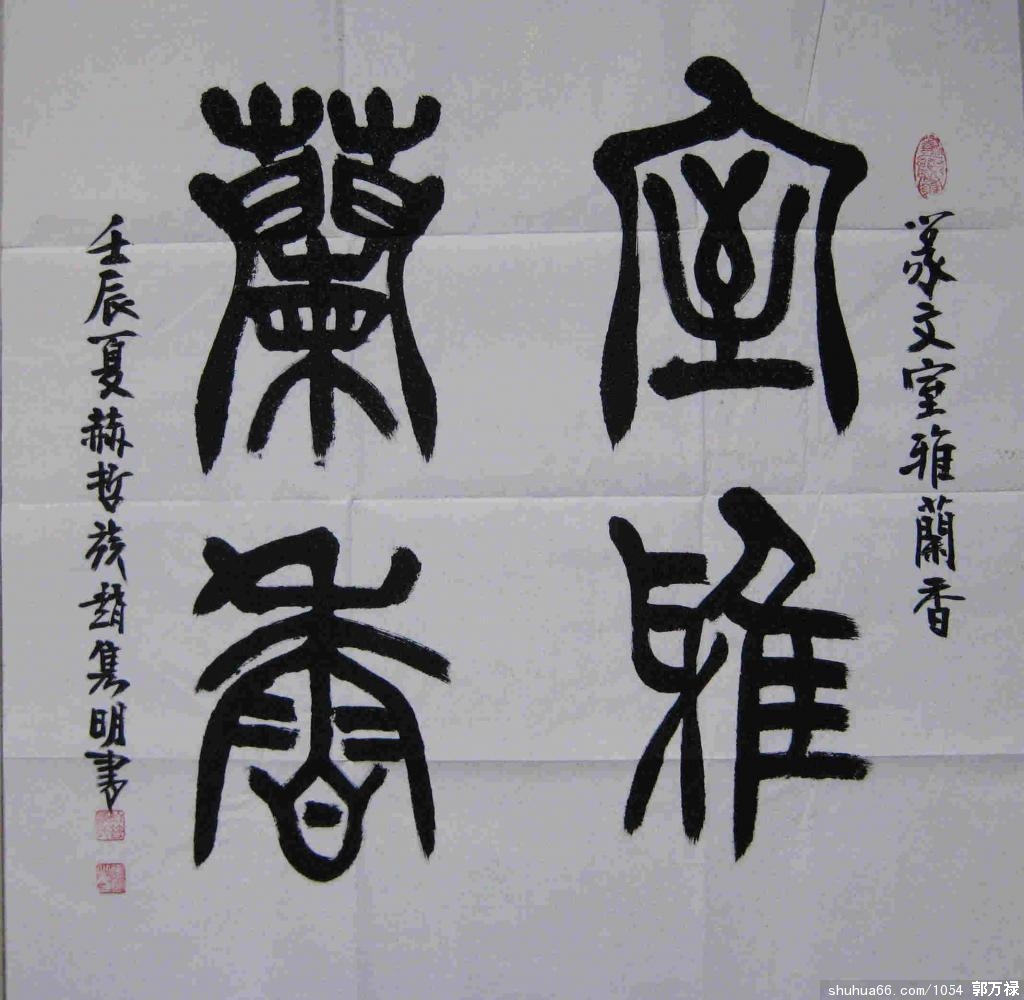 篆文室雅蘭香
室雅
蘭香
壬辰夏赫哲族趙隽明書
shuhua66.com/1054 郭万禄